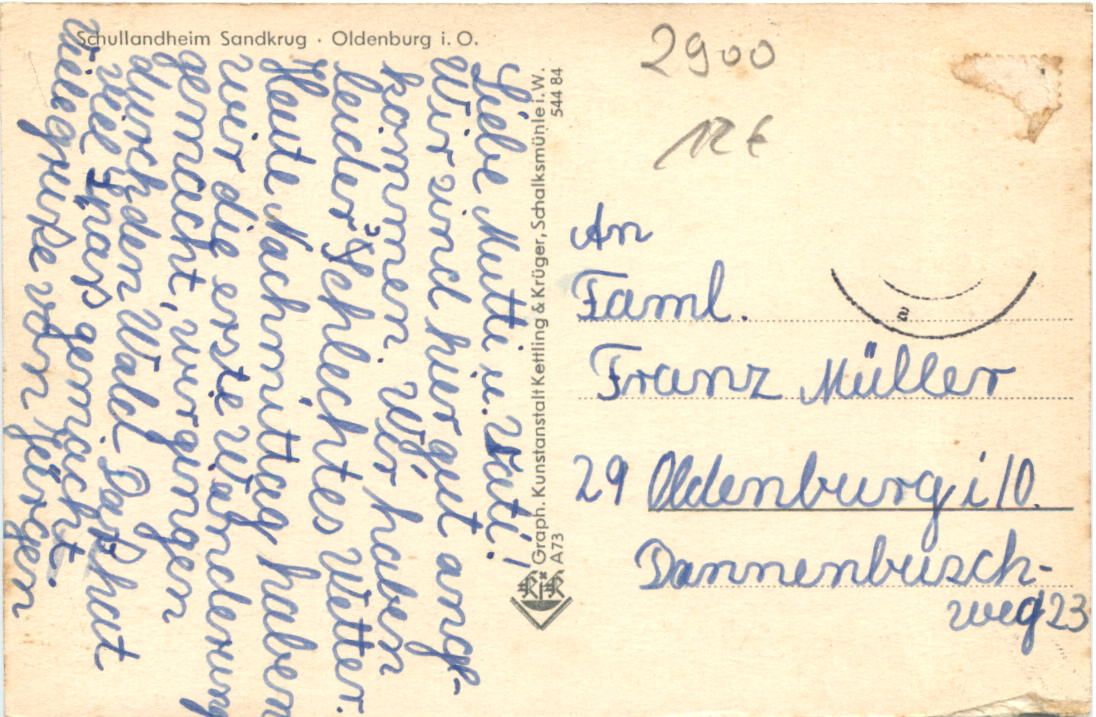 Schullandheim Sandkrug · Oldenburg i. O.
Liebe Mutti u. Vati!
Wir sind hier gut ange-
kommen. Wir haben
leider Schlechtes Wetter.
Heute Nachmittag haben
wir die erste Wanderung
gemacht, wir gingen
durch den Wald Das hat
viel Spaß gemacht.
viele grüße von Jürgen
Graph. Kunstanstalt Kettling & Krüger, Schalksmühle i. W.
A73
544 84
2900
12 €
An
Faml.
Franz Müller
29 Oldenburg i/O.
Dannenbusch-
weg 23
a